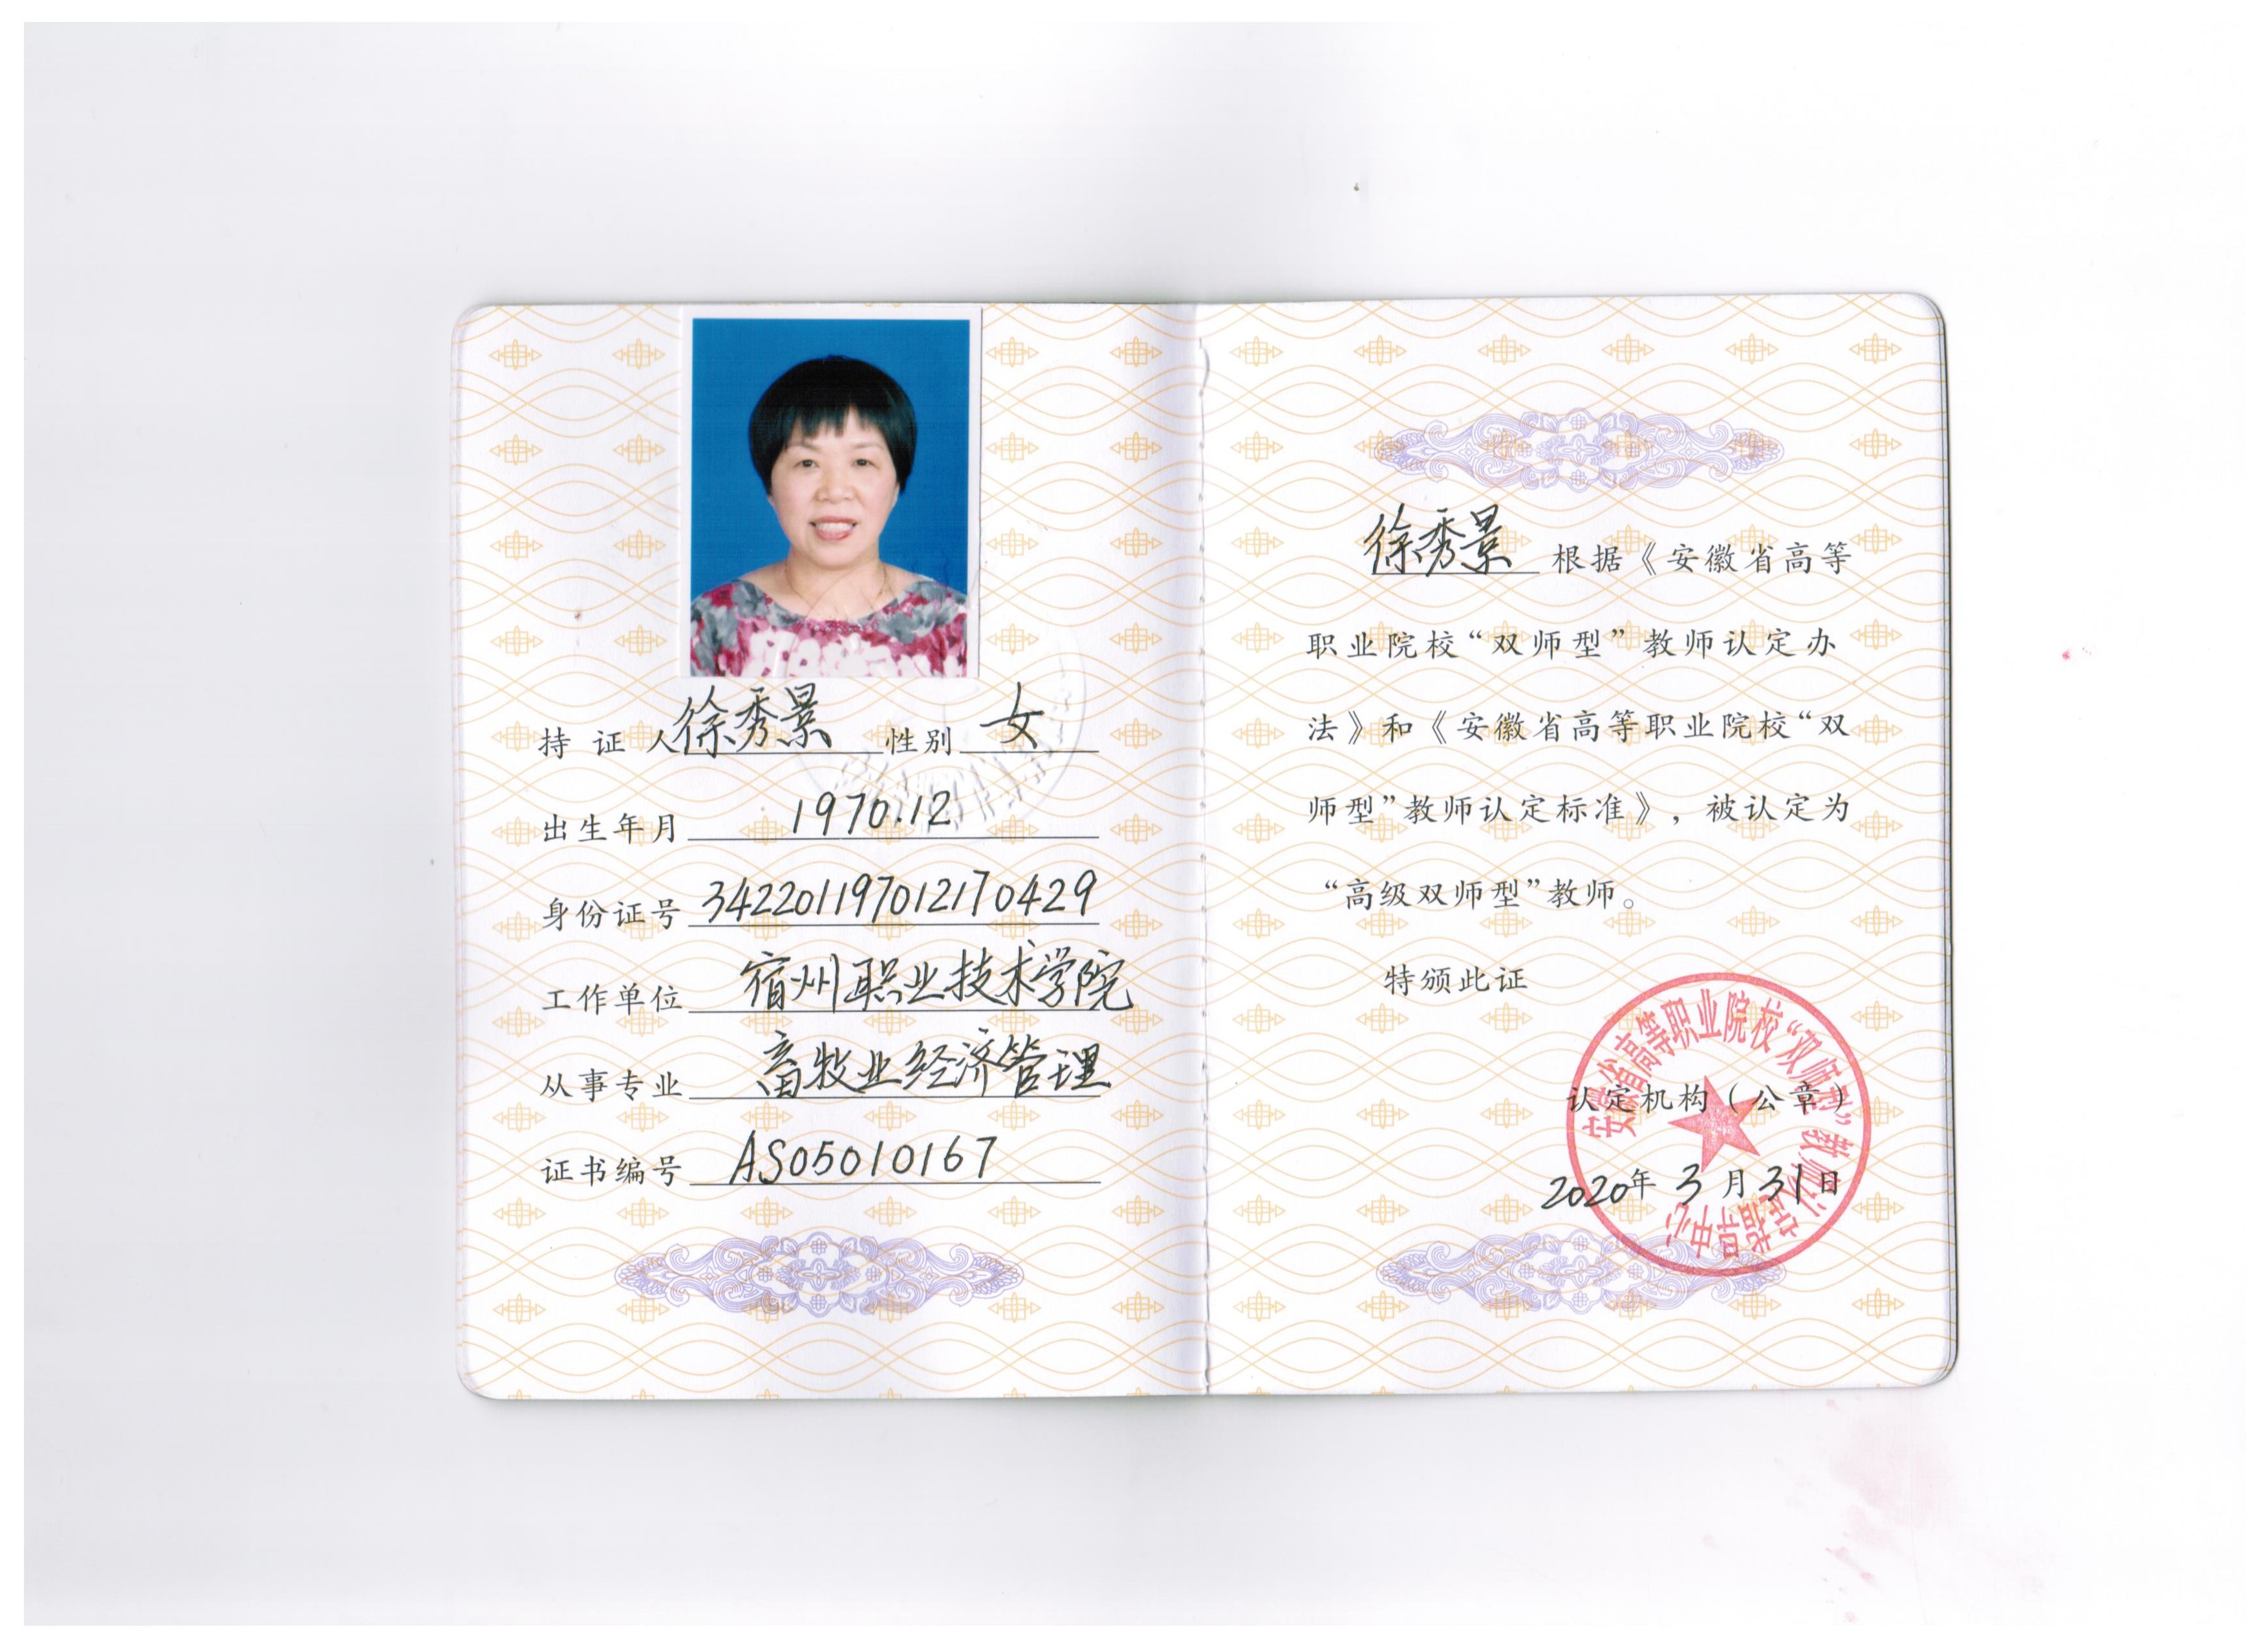 持证人 徐秀景 性别 女
出生年月 1970.12
身份证号 342201197012170429
工作单位 宿州职业技术学院
从事专业 畜牧业经济管理
证书编号 AS05010167
徐秀景 根据《安徽省高等
职业院校“双师型”教师认定办
法》和《安徽省高等职业院校“双
师型”教师认定标准》，被认定为
“高级双师型”教师。
特颁此证
安徽省高等职业院校“双师型”教师认定指导中心
认定机构（公章）
2020年 3 月 31 日